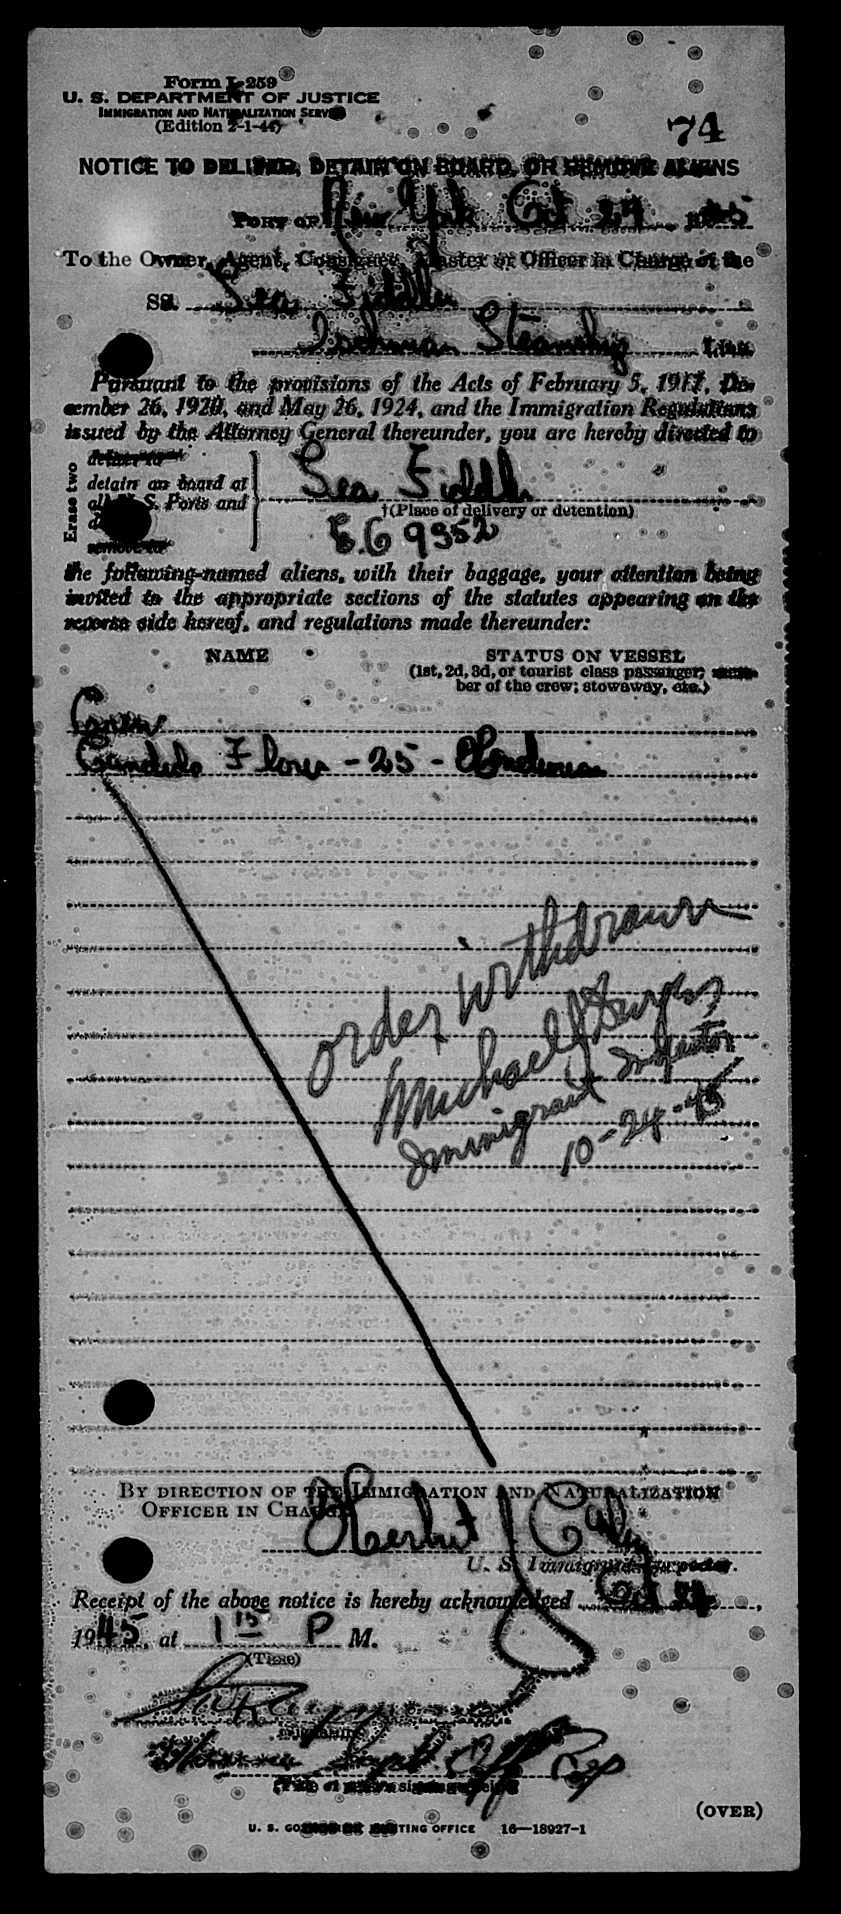 Form I-259
U. S. DEPARTMENT OF JUSTICE
IMMIGRATION AND NATURALIZATION SERVICE
(Edition 2-1-44)
74
NOTICE TO DELIVER, DETAIN ON BOARD, OR REMOVE ALIENS
PORT OF New York Oct 24 1945
To the Owner, Agent, Consignee, Master or Officer in Charge of the
SS. Sea Fiddler
Isthmian Steamship Line
Pursuant to the provisions of the Acts of February 5, 1917, De-
cember 26, 1920, and May 26, 1924, and the Immigration Regulations
issued by the Attorney General thereunder, you are hereby directed to
Erase two
deliver to
detain on board at
all U. S. Ports and
remove to
Sea Fiddler
†(Place of delivery or detention)
E.G 9352
the following-named aliens, with their baggage, your attention being
invited to the appropriate sections of the statutes appearing on the
reverse side hereof, and regulations made thereunder:
NAME STATUS ON VESSEL
(1st, 2d, 3d, or tourist class passenger; mem-
ber of the crew; stowaway, etc.)
Crew
Candido Flores - 25 - Honduran
order withdrawn
Michael J
Immigrant Inspector
10-24-45
BY DIRECTION OF THE IMMIGRATION AND NATURALIZATION
OFFICER IN CHARGE
Herbert J
U. S. Immigrant Inspector.
Receipt of the above notice is hereby acknowledged Oct 24,
1945, at 1 15 P M.
(Time)
(Title of person signing receipt)
(OVER)
U. S. GOVERNMENT PRINTING OFFICE 16—18927-1